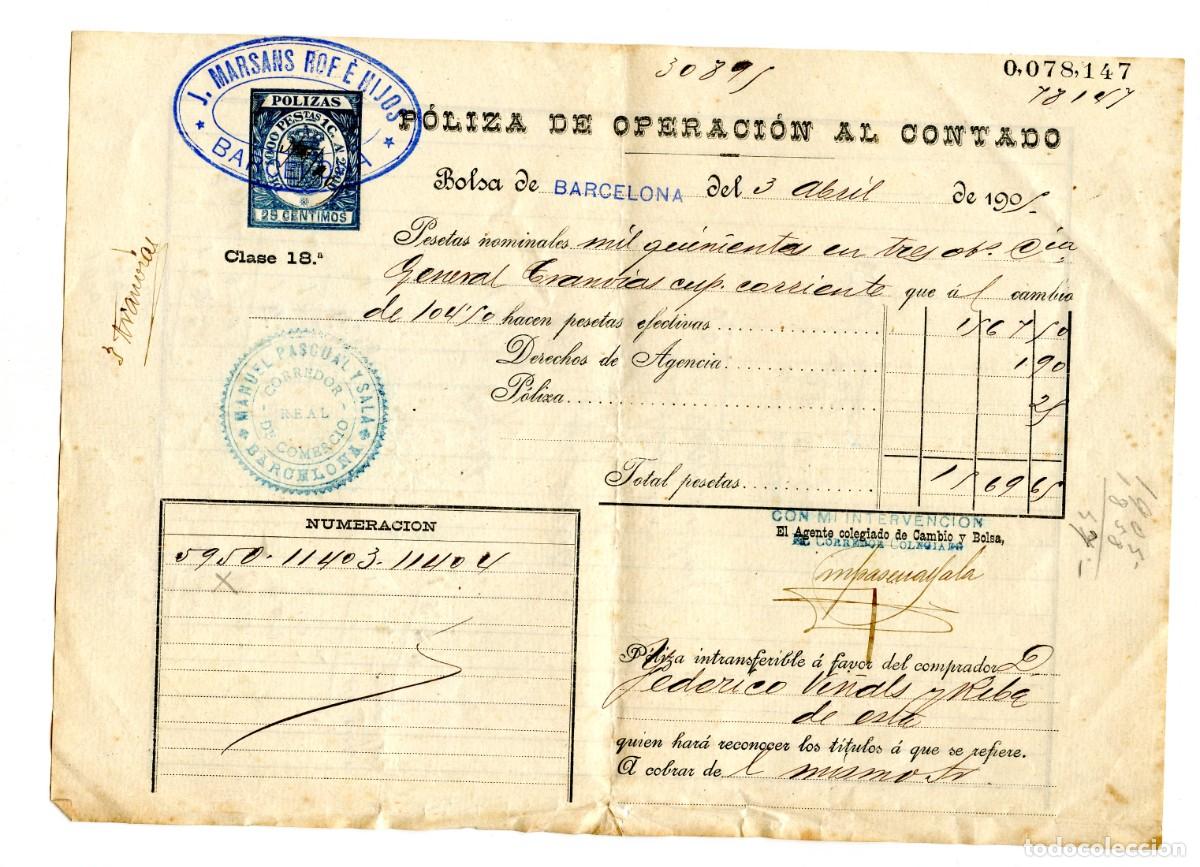 30895
0,078,147
78147
J. MARSANS ROF É HIJOS
BARCELONA
POLIZAS
DE 1000 PESTAS 1C. A 2500
29 CENTIMOS
Clase 18.ª
PÓLIZA DE OPERACIÓN AL CONTADO
Bolsa de BARCELONA del 3 Abril de 1905.
Pesetas nominales mil quinientas en tres obs. Cia
General Tranvias cup. corriente que á l cambio
de 104,50 hacen pesetas efectivas 1567 50
Derechos de Agencia 1 90
Póliza 25
Total pesetas 1569 65
3 tranvías
MANUEL PASCUAL Y SALA
CORREDOR
REAL
DE COMERCIO
BARCELONA
NUMERACION
5950-11403-11404
X
CON MI INTERVENCION
El Agente colegiado de Cambio y Bolsa,
EL CORREDOR COLEGIADO
Póliza intransferible á favor del comprador D
Federico Viñals y Riba
de esta
quien hará reconocer los títulos á que se refiere.
A cobrar de l mismo Sr.
todocoleccion